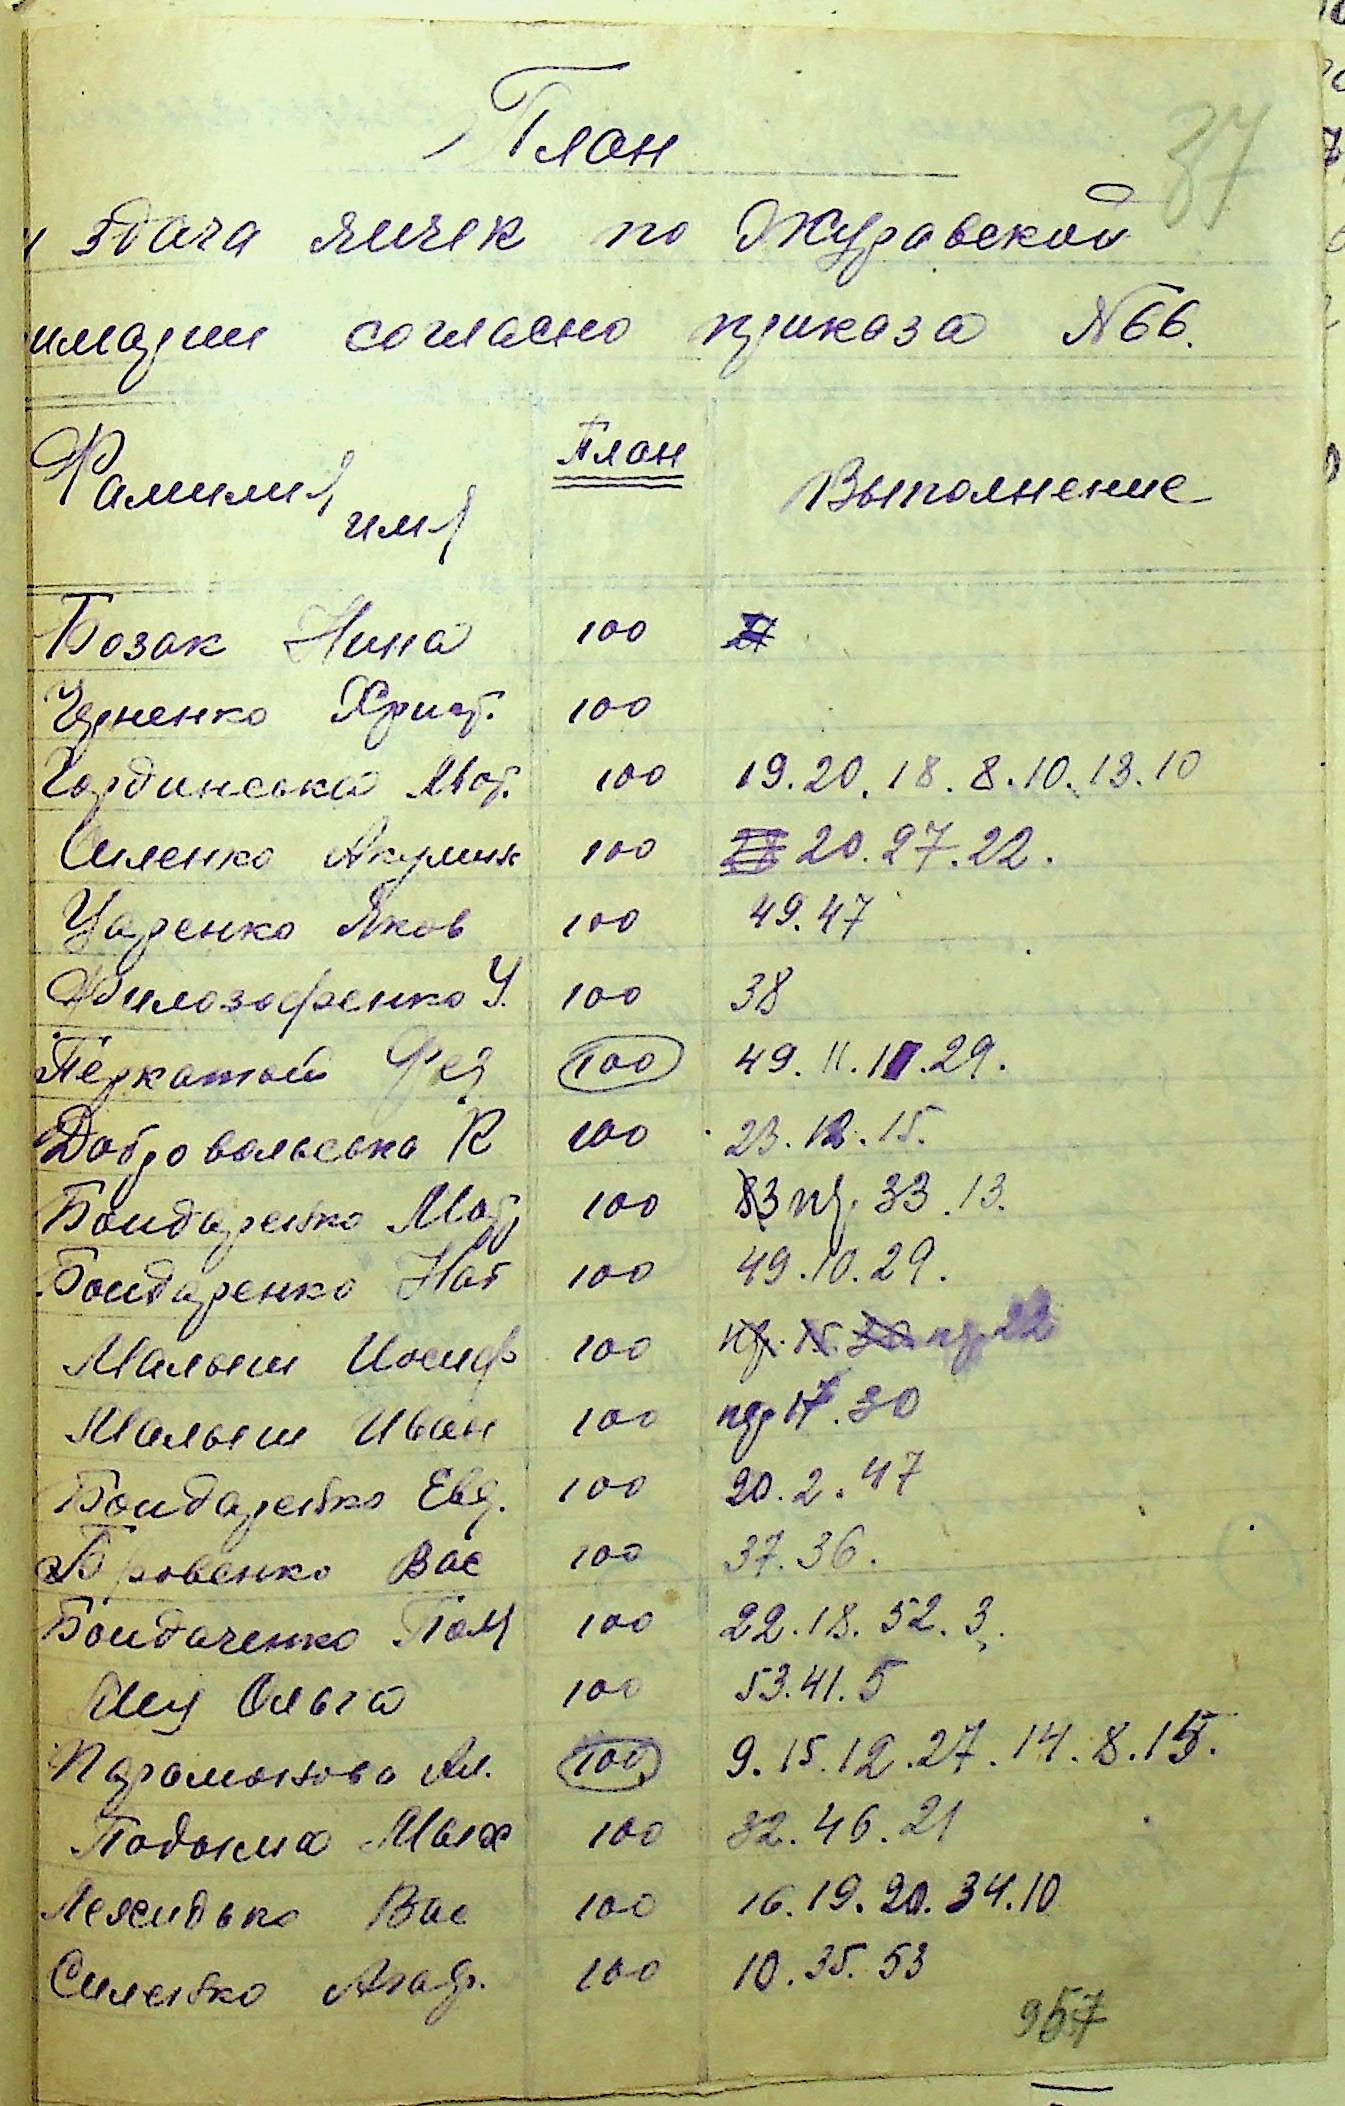 План
37
здача яичек по Журавской
имарии согласно приказа №66.
Фамилия, имя План Выполнение
Бозак Нина 100
Черненко Христ. 100
Гординська Мот. 100 19.20.18.8.10.13.10
Силенко Акулина 100 20.27.22.
Царенко Яков 100 49.47
Филозофенко У. 100 38
Перкатый Фед 100 49.11.11.29.
Добровольська К 100 23.12.15.
Бондаренко Мотр 100 пр. 33.13.
Бондаренко Нат 100 49.10.29.
Малыш Иосиф 100 пр. 22
Малыш Иван 100 пр 17.30
Бондаренко Евд. 100 20.2.47
Бровенко Вас 100 37.36.
Бондаченко Пал 100 22.18.52.3.
Ольга 100 53.41.5
Парамонова Ал. 100 9.15.12.27.14.8.15.
Подоких Мих 100 32.46.21
Лежидько Вас 100 16.19.20.34.10
Силенко Агаф. 100 10.35.53
957